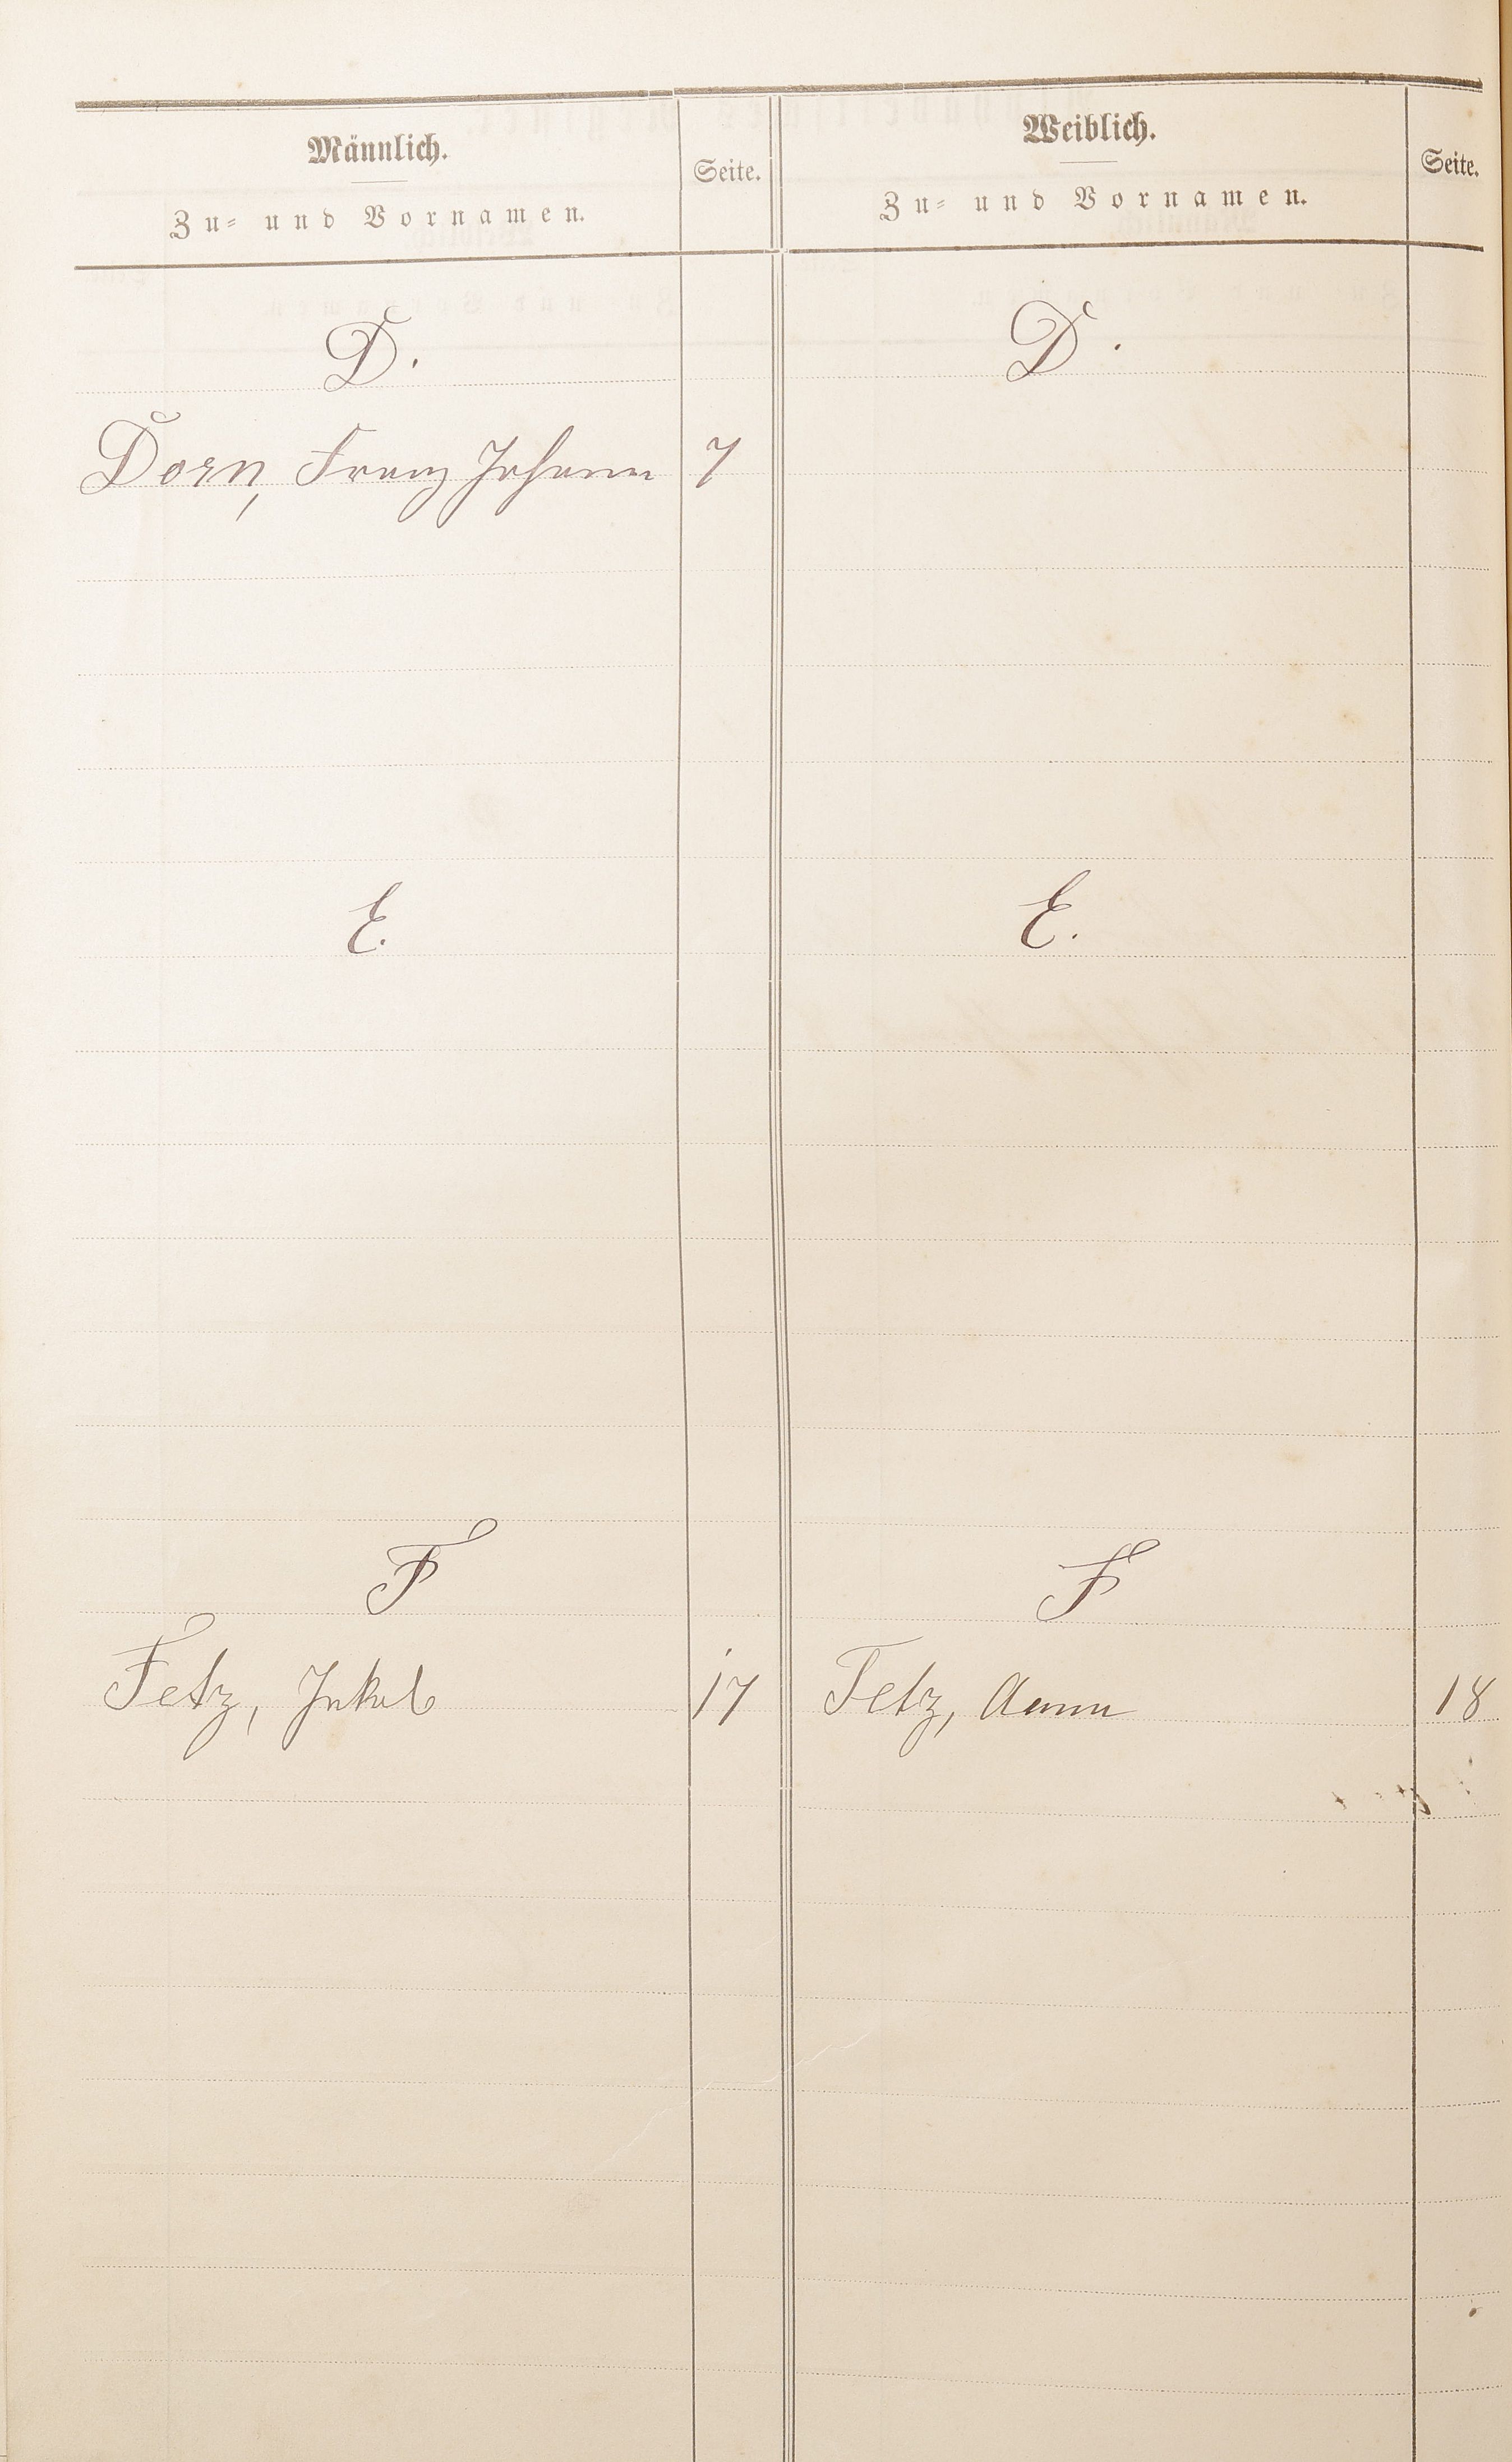 Männlich.
Zu- und Vornamen.
Seite.
Weiblich.
Zu- und Vornamen.
Seite.
D.
D.
Dorn, Franz Johann 7
E.
E.
F
F
Fetz, Jakob 17
Fetz, Anna 18